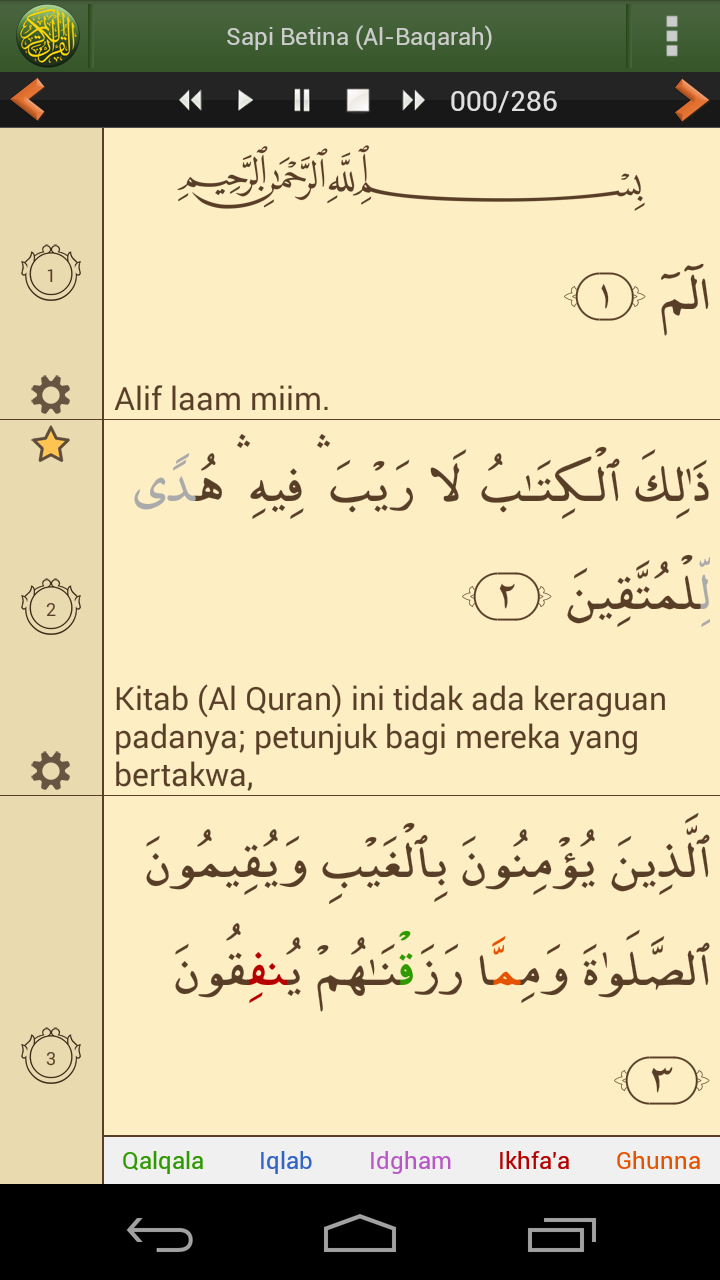 Sapi Betina (Al-Baqarah)
000/286
بِسْمِ ٱللَّهِ ٱلرَّحْمَٰنِ ٱلرَّحِيمِ
1
الٓمٓ ١
Alif laam miim.
ذَٰلِكَ ٱلْكِتَـٰبُ لَا رَيْبَ ۛ فِيهِ ۛ هُدًى
2
لِّلْمُتَّقِينَ ٢
Kitab (Al Quran) ini tidak ada keraguan
padanya; petunjuk bagi mereka yang
bertakwa,
ٱلَّذِينَ يُؤْمِنُونَ بِٱلْغَيْبِ وَيُقِيمُونَ
ٱلصَّلَوٰةَ وَمِمَّا رَزَقْنَـٰهُمْ يُنفِقُونَ
3
٣
Qalqala Iqlab Idgham Ikhfa'a Ghunna